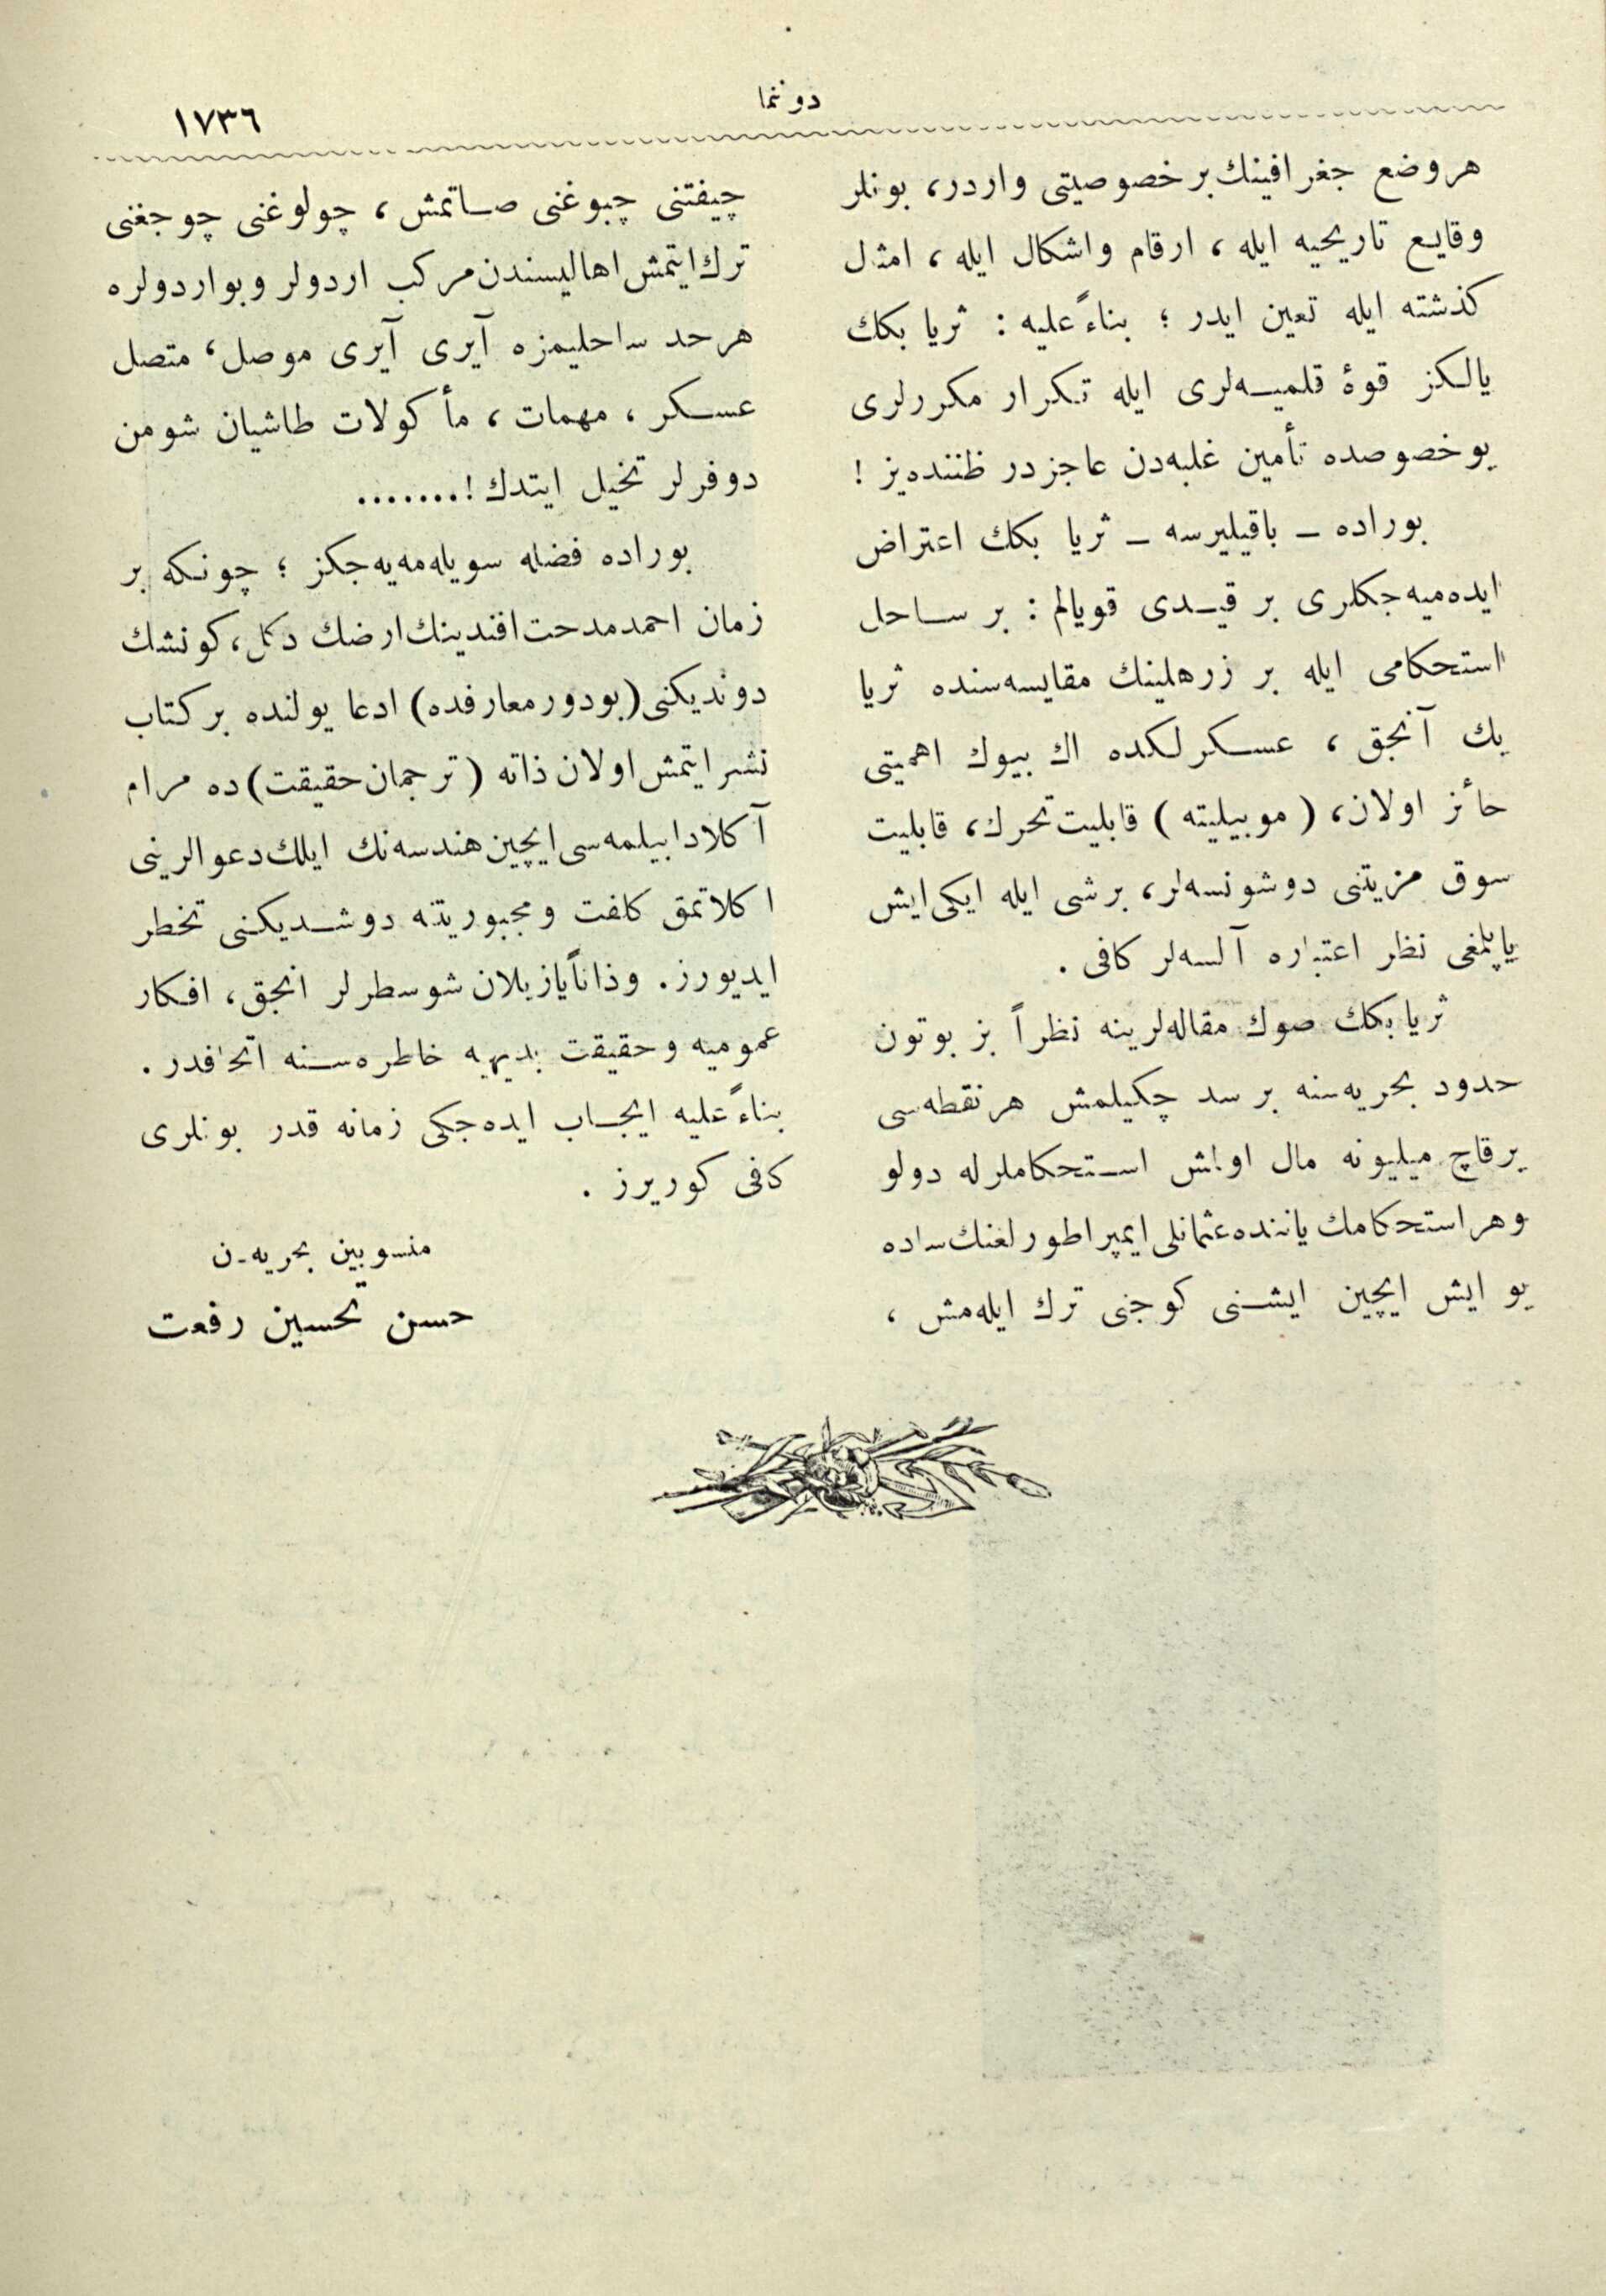 دونما
١٧٣٦
هر وضع جغرافينك بر خصوصيتى واردر، بونلر
وقايع تاريخيه ايله ، ارقام واشكال ايله ، امثال
كذشته ايله تعين ايدر ؛ بناءً عليه : ثريا بكك
يالكز قوۀ قلميه‌لرى ايله تكرار مكررلرى
بو خصوصده تأمين غلبه‌دن عاجزدر ظننده‌يز !
بوراده ـ باقيليرسه ـ ثريا بكك اعتراض
ايده‌ميه‌جكلرى بر قيدى قويالم : بر ساحل
استحكامى ايله بر زرهلينك مقايسه‌سنده ثريا
بك آنجق ، عسكرلكده اك بيوك اهميتى
حائز اولان، (موبيليته) قابليت تحرك، قابليت
سوق مزيتنى دوشونسه‌لر، برشى ايله ايكى ايش
ياپلمغى نظر اعتباره آلسه‌لر كافى .
ثريا بكك صوك مقاله‌لرينه نظراً بز بوتون
حدود بحريه‌سنه بر سد چكيلمش هر نقطه‌سى
بر قاچ ميليونه مال اولمش استحكاملرله دولو
وهر استحكامك ياننده عثمانلى ايمپراطورلغنك ساده
بو ايش ايچين ايشنى كوجنى ترك ايله‌مش ،
چيفتنى چبوغنى صاتمش ، چولوغنى چوجغنى
ترك ايتمش اهاليسندن مركب اردولر وبو اردولره
هر حد ساحليمزه آيرى آيرى موصل، متصل
عسكر ، مهمات ، مأكولات طاشيان شومن
دوفرلر تخيل ايتدك !.......
بوراده فضله سويله‌مه‌يه‌جكز ؛ چونكه بر
زمان احمد مدحت افندينك ارضك دكل، كونشك
دونديكنى (بو دور معارفده) ادعا يولنده بر كتاب
نشر ايتمش اولان ذاته (ترجمان حقيقت) ده مرام
آكلادابيلمه‌سى ايچين هندسه‌نك ايلك دعوالرينى
اكلاتمق كلفت ومجبوريتنه دوشديكنى تخطر
ايديورز. وذاتاً يازيلان شو سطرلر انجق، افكار
عموميه وحقيقت بديهيه خاطره‌سنه اتحافدر .
بناءً عليه ايجاب ايده‌جكى زمانه قدر بونلرى
كافى كوريرز .
منسوبين بحريه‌دن
حسن تحسين رفعت